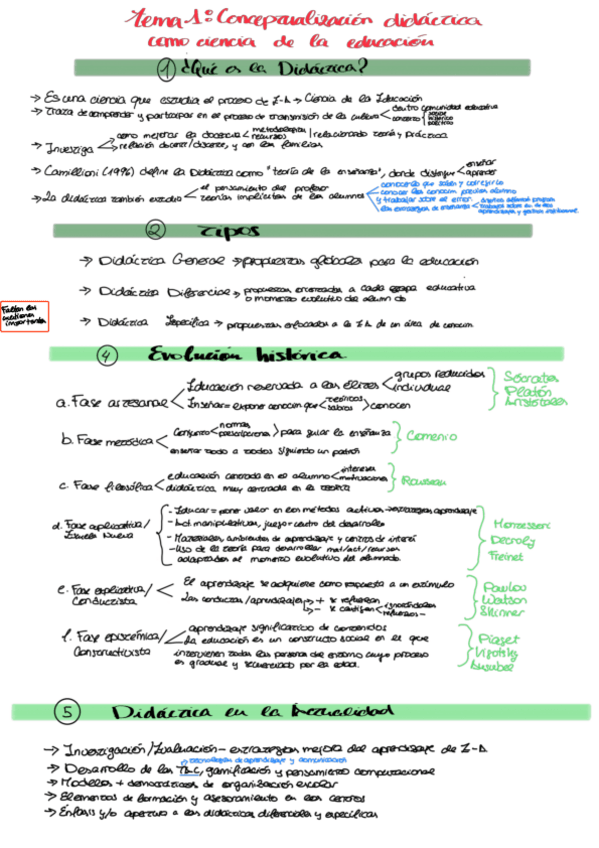 Tema 1: Conceptualización didáctica
como ciencia de la educación
1 ¿Qué es la Didáctica?
→ Es una ciencia que estudia el proceso de E-A → Ciencia de la Educación
→ Trata de comprender y participar en el proceso de transmisión de la cultura dentro comunidad educativa
contexto social
histórico
político
→ Investiga como mejorar la docencia metodologías
recursos relacionando teoría y práctica
relación docente/discente, y con las familias
→ Camillioni (1996) define la Didáctica como "teoría de la enseñanza", donde distingue enseñar
aprender
→ La didáctica también estudia el pensamiento del profesor
teorías implícitas de los alumnos
conocerlo que saben y corregirlo
conocer los conocim previos alumno
y trabajar sobre el error.
las estrategias de enseñanza
2 Tipos
→ Didáctica General → propuestas globales para la educación
→ Didáctica Diferencial → propuestas encaminadas a cada etapa educativa
o momento evolutivo del alumnado
→ Didáctica Específica → propuestas enfocadas a la E-A de un área de conocim
Faltan las
cuestiones
importantes
4 Evolución histórica
a. Fase artesanal
Educación reservada a las élites grupos reducidos
individual
Enseñar = exponer conocim que teóricos
sabios conocen
Sócrates
Platón
Aristóteles
b. Fase metódica
Conjunto normas
prescripciones para guiar la enseñanza
enseñar todo a todos siguiendo un patrón
Comenio
c. Fase filosófica
educación centrada en el alumno intereses
motivaciones
didáctica muy centrada en la teoría
Rousseau
d. Fase aplicativa/
Escuela Nueva
- Educar = poner valor en los métodos activos → estrategias aprendizaje
- Act. manipulativas, juego = centro del desarrollo
- Materiales, ambientes de aprendizaje y centros de interés
- Uso de la teoría para desarrollar mat/act/recursos
adaptados al momento evolutivo del alumnado.
Montessori
Decroly
Freinet
e. Fase explicativa/
Conductista
El aprendizaje se adquiere como respuesta a un estímulo
Las conductas/aprendizajes + se refuerzan
- se castigan ignorándolas
refuerzos -
Pavlov
Watson
Skinner
f. Fase epistémica/
Constructivista
aprendizaje significativo de contenidos
La educación es un constructo social en el que
intervienen todas las personas del entorno cuyo proceso
es gradual y secuenciado por la edad.
Piaget
Vigotsky
Ausubel
5 Didáctica en la Actualidad
→ Investigación/Evaluación - estrategias mejora del aprendizaje de E-A
tecnologías de aprendizaje y comunicación
→ Desarrollo de las TAC, gamificación y pensamiento computacional
→ Modelos + democráticos de organización escolar
→ Elementos de formación y asesoramiento en los centros
→ Énfasis y/o apertura a las didácticas diferenciales y específicas